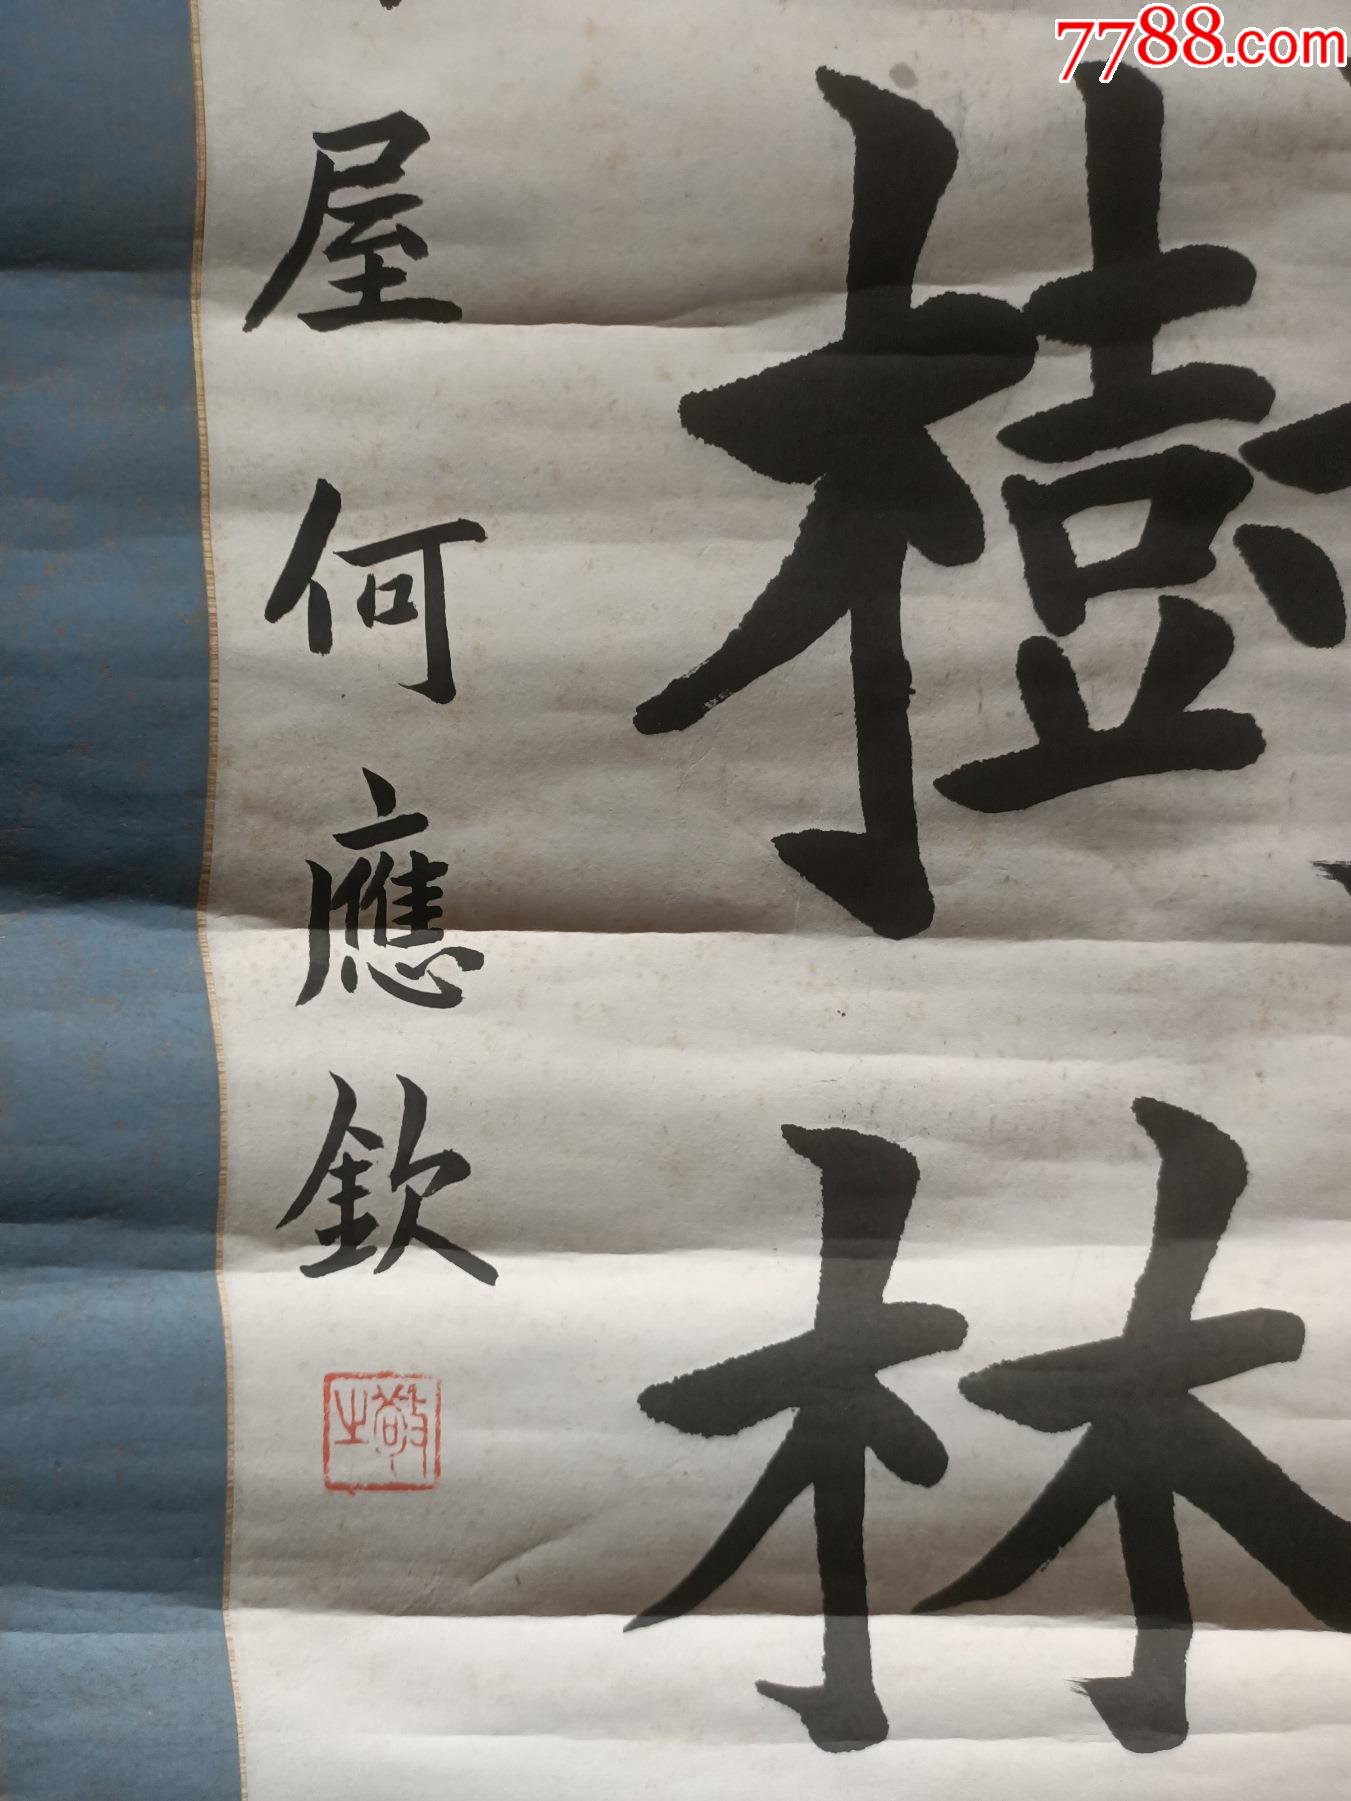 7788.com
樹林
屋何應欽
敬之